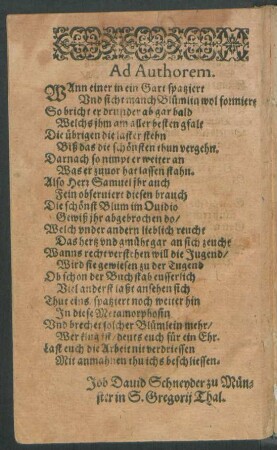 Ad Authorem.
WAnn einer in ein Gart spaziert
Vnd sicht manch Blümlin wol formiert
So bricht er drunder ab gar bald
Welchs jhm am aller besten gfalt
Die übrigen die laßt er stehn
Biß das die schönsten thun vergehn.
Darnach so nimpt er weiter an
Was er zuuor hat lassen stahn.
Also Herr Samuel jhr auch
Fein obseruiert diesen brauch
Die schönst Blum im Ouidio
Gewiß jhr abgebrochen do/
Welch vnder andern lieblich reucht
Das hertz vnd gmüht gar an sich zeucht
Wanns recht verstehen will die Jugend/
Wird sie gewiesen zu der Tugend
Ob schon der Buchstab eusserlich
Viel anderst laßt ansehen sich
Thut eins, spaziert noch weiter hin
In diese Metamorphosin
Vnd brechet solcher Blümlein mehr/
Wer klug ist/ deuts euch für ein Ehr.
Last euch die Arbeit nit verdriessen
Mit anmahnen thu ichs beschliessen.
Job Dauid Schneyder zu Mün-
ster in S. Gregorij Thal.